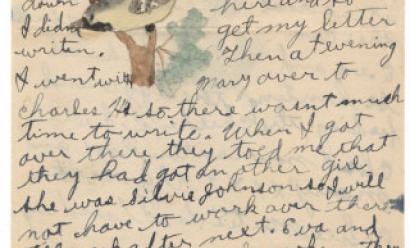 down here and so
I didnt get my letter
writen. Then at evening
I went with Mary over to
Charles H so there wasnt much
time to write. When I got
over there they toed me that
they had got an other girl
she was Silvie Johnson so I will
not have to work over there
after next. Eva and